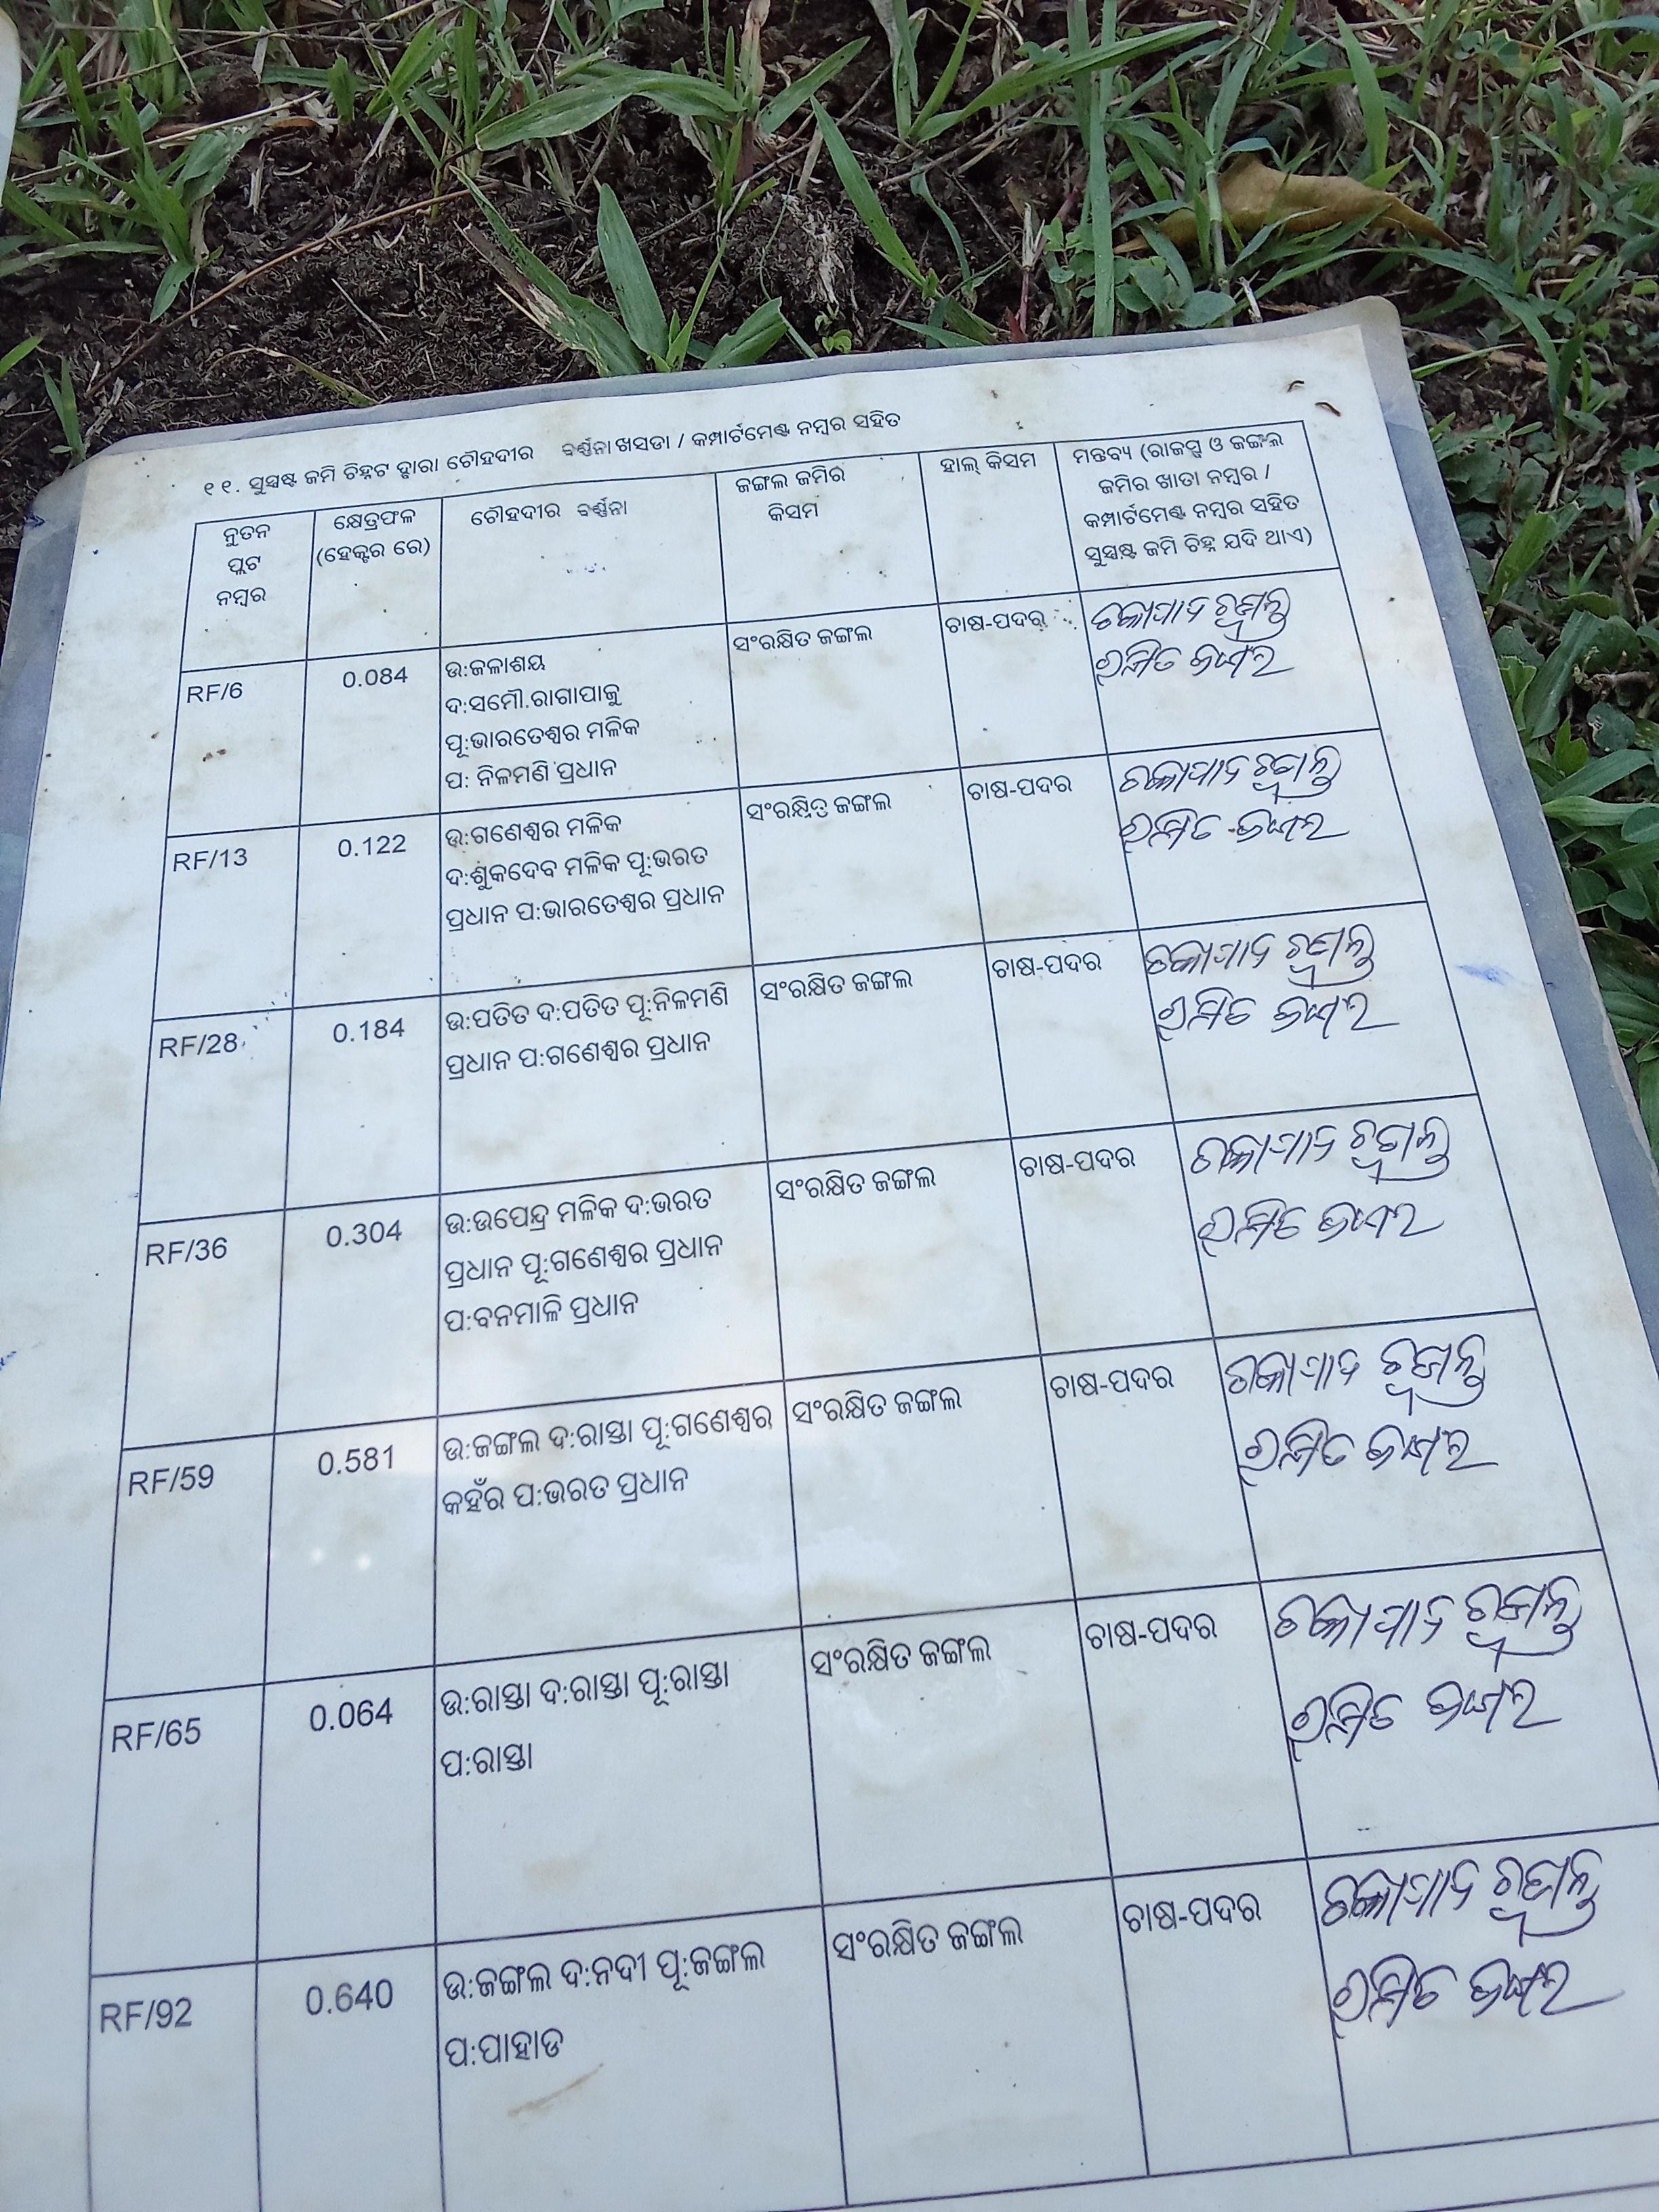 ୧୧. ସୁସ୍ପଷ୍ଟ ଜମି ଚିହ୍ନଟ ଦ୍ୱାରା ଚୌହଦୀର ବର୍ଣ୍ଣନା ଖସଡା / କମ୍ପାର୍ଟମେଣ୍ଟ ନମ୍ବର ସହିତ
ନୁତନ
ପ୍ଲଟ
ନମ୍ବର
କ୍ଷେତ୍ରଫଳ
(ହେକ୍ଟର ରେ)
ଚୌହଦୀର ବର୍ଣ୍ଣନା
ଜଙ୍ଗଲ ଜମିର
କିସମ
ହାଲ୍ କିସମ
ମନ୍ତବ୍ୟ (ରାଜସ୍ୱ ଓ ଜଙ୍ଗଲ
ଜମିର ଖାତା ନମ୍ବର /
କମ୍ପାର୍ଟମେଣ୍ଟ ନମ୍ବର ସହିତ
ସୁସ୍ପଷ୍ଟ ଜମି ଚିହ୍ନ ଯଦି ଥାଏ)
RF/6
0.084
ଉ:ଜଳାଶୟ
ଦ:ସମୌ.ରାଗାପାଜୁ
ପୂ:ଭାରତେଶ୍ୱର ମଳିକ
ପ: ନିଳମଣି ପ୍ରଧାନ
ସଂରକ୍ଷିତ ଜଙ୍ଗଲ
ଚାଷ-ପଦର
RF/13
0.122
ଉ:ଗଣେଶ୍ୱର ମଳିକ
ଦ:ଶୁକଦେବ ମଳିକ ପୂ:ଭରତ
ପ୍ରଧାନ ପ:ଭାରତେଶ୍ୱର ପ୍ରଧାନ
ସଂରକ୍ଷିତ ଜଙ୍ଗଲ
ଚାଷ-ପଦର
RF/28
0.184
ଉ:ପତିତ ଦ:ପତିତ ପୂ:ନିଳମଣି
ପ୍ରଧାନ ପ:ଗଣେଶ୍ୱର ପ୍ରଧାନ
ସଂରକ୍ଷିତ ଜଙ୍ଗଲ
ଚାଷ-ପଦର
RF/36
0.304
ଉ:ଉପେନ୍ଦ୍ର ମଳିକ ଦ:ଭରତ
ପ୍ରଧାନ ପୂ:ଗଣେଶ୍ୱର ପ୍ରଧାନ
ପ:ବନମାଳି ପ୍ରଧାନ
ସଂରକ୍ଷିତ ଜଙ୍ଗଲ
ଚାଷ-ପଦର
RF/59
0.581
ଉ:ଜଙ୍ଗଲ ଦ:ରାସ୍ତା ପୂ:ଗଣେଶ୍ୱର
କହଁର ପ:ଭରତ ପ୍ରଧାନ
ସଂରକ୍ଷିତ ଜଙ୍ଗଲ
ଚାଷ-ପଦର
RF/65
0.064
ଉ:ରାସ୍ତା ଦ:ରାସ୍ତା ପୂ:ରାସ୍ତା
ପ:ରାସ୍ତା
ସଂରକ୍ଷିତ ଜଙ୍ଗଲ
ଚାଷ-ପଦର
RF/92
0.640
ଉ:ଜଙ୍ଗଲ ଦ:ନଦୀ ପୂ:ଜଙ୍ଗଲ
ପ:ପାହାଡ
ସଂରକ୍ଷିତ ଜଙ୍ଗଲ
ଚାଷ-ପଦର